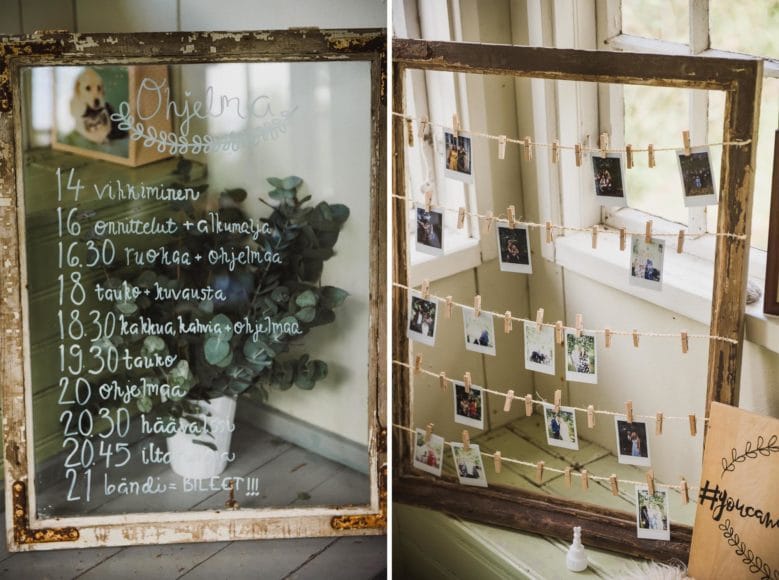 Ohjelma
14 vihkiminen
16 onnittelut + alkumalja
16.30 ruokaa + ohjelmaa
18 tauko + kuvausta
18.30 kakkua, kahvia + ohjelmaa
19.30 tauko
20 ohjelmaa
20.30 häävalssi
20.45 ilta
21 bändi = BILEET!!!
#youcan